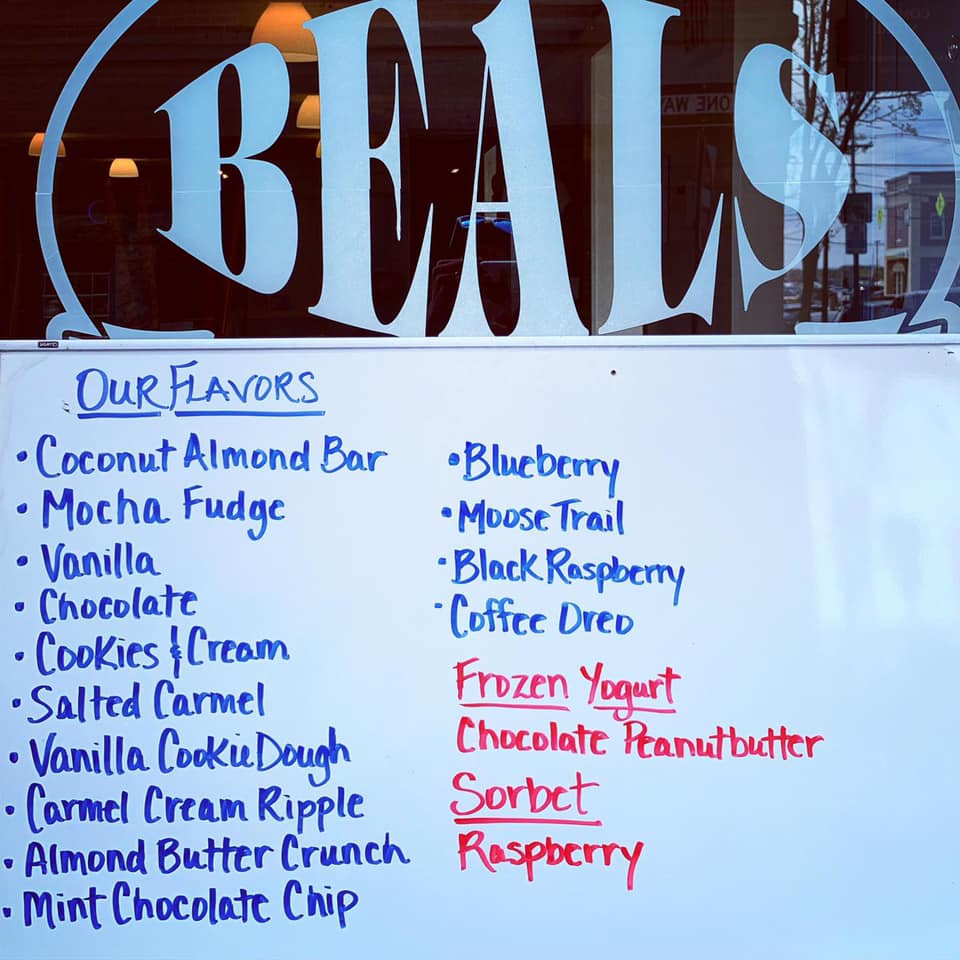 BEALS
ONE WAY
OUR FLAVORS
• Coconut Almond Bar
• Mocha Fudge
• Vanilla
• Chocolate
• Cookies & Cream
• Salted Carmel
• Vanilla Cookie Dough
• Carmel Cream Ripple
• Almond Butter Crunch
• Mint Chocolate Chip
• Blueberry
• Moose Trail
• Black Raspberry
• Coffee Oreo
Frozen Yogurt
Chocolate Peanutbutter
Sorbet
Raspberry